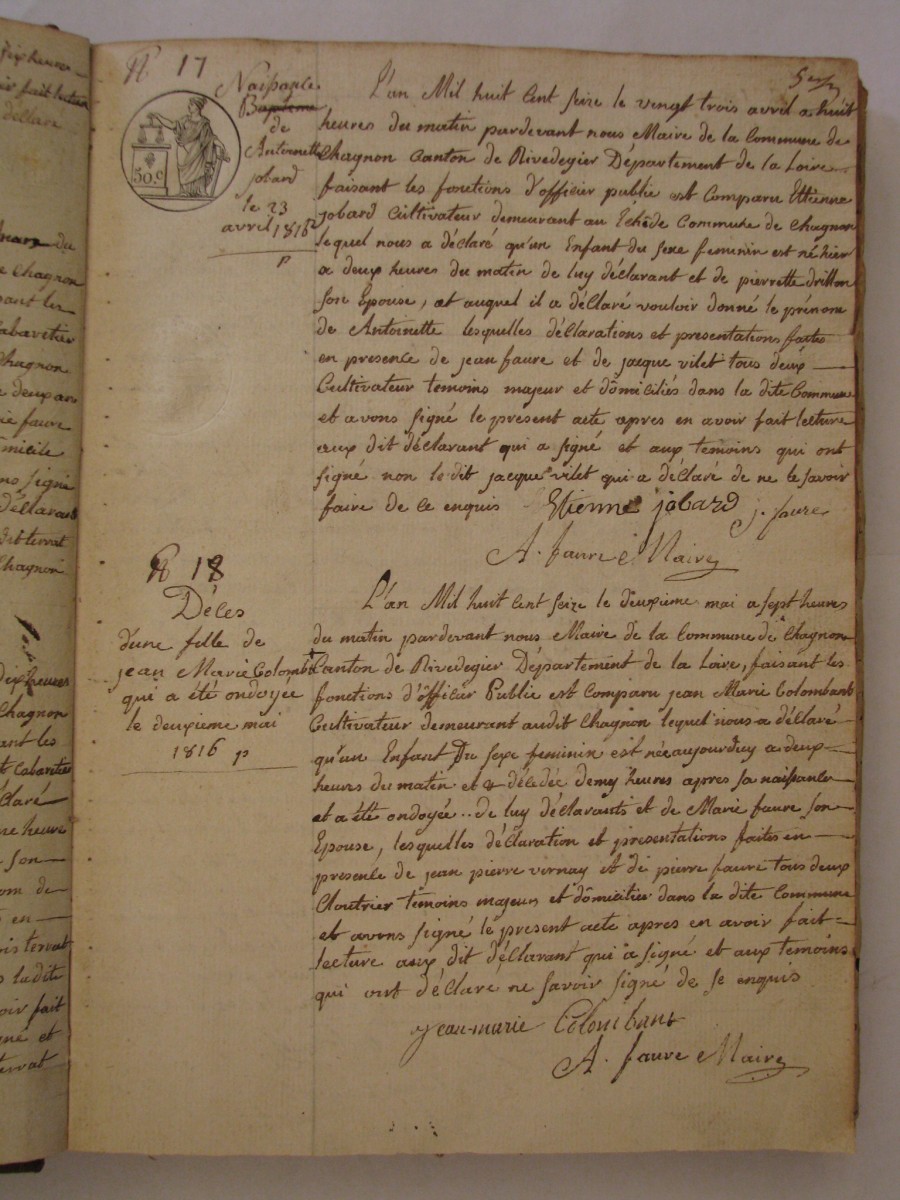 six heures
oir fait lecture
déclaré
du
Chagnon
sant les
Cabaretier
Chagnon
deux ans
ie faure
omicile
ns signé
déclarant
dit terrat
Chagnon
dix heures
Chagnon
ant les
t Cabaretier
claré
ne heure
son
om de
en
is terrat
ladite
oir fait
gné et
terrat
N 17
Naissance
Baptême
de
Antoinette
jobard
le 23
avril 1816
p
50.c
L'an Mil huit Cent seize le vingt trois avril a huit
heures du matin pardevant nous Maire de la Commune de
Chagnon Canton de Rivedegier Département de la Loire
faisant les fonctions d'officier public est Comparu Ettienne
jobard Cultivateur demeurant au Commune de Chagnon
lequel nous a déclaré qu'un Enfant du sexe feminin est né hier
a deux heures du matin de luy déclarant et de pierrette drillon
son Epouse, et auquel il a déclaré vouloir donné le prénom
de Antoinette lesquelles déclarations et presentations faites
en presence de jean faure et de jacque vilet tous deux
Cultivateur temoins majeur et dômiciliés dans la dite Commune
et avons signé le present acte apres en avoir fait lecture
aux dit déclarant qui a signé et aux temoins qui ont
signé non le dit jacque vilet qui a déclaré de ne le savoir
faire de ce enquis Etienne jobard
A. faure Maire
N 18
Déces
d'une fille de
jean Marie Colomb
qui a été ondoyée
le deuxieme mai
1816 p
L'an Mil huit Cent seize le deuxieme mai a sept heures
du matin pardevant nous Maire de la Commune de Chagnon
Canton de Rivedegier Département de la Loire, faisant les
fonctions d'officier Public est Comparu jean Marie Colombant
Cultivateur demeurant audit Chagnon lequel nous a déclaré
qu'un Enfant Du sexe feminin est née aujourdhuy a deux
heures du matin et décedée demy heures apres sa naissance
et a été ondoyée .. de luy déclarants et de Marie faure son
Epouse, lesquelles déclaration et presentations faites en
presence de jean pierre vernay et de pierre faure tous deux
Cloutrier temoins majeurs et dômicilier dans la dite Commune
et avons signé le present acte apres en avoir fait
lecture aux dit déclarant qui a signé et aux temoins
qui ont déclare ne savoir signé de se enquis
jean-marie Colombant
A. faure Maire